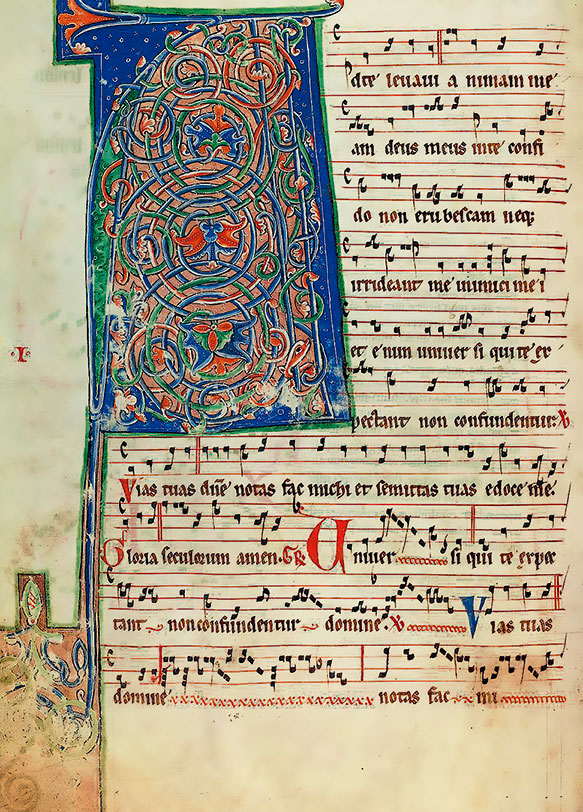 A
Dte leuaui a nimam me
am deus meus inte confi
do non erubescam neq;
irrideant me inimici mei
et enim uniuer si qui te ex
pectant non confundentur: V
I
Vias tuas dñe notas fac michi et semitas tuas edoce me.
Gloria seculorum amen. GR Uniuer si qui te expec
tant non confundentur domine. V Vias tuas
domine notas fac mi